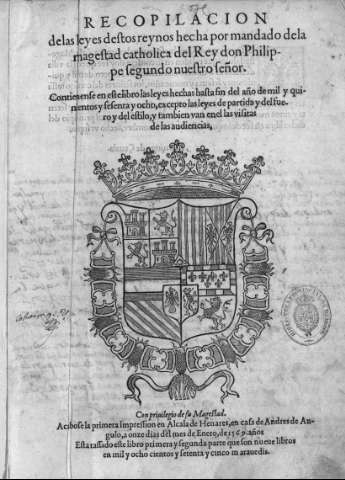 RECOPILACION
de las leyes destos reynos hecha por mandado dela
magestad catholica del Rey don Philip-
pe segundo nuestro señor.
Contienense en este libro las leyes hechas hasta fin del año de mil y qui-
nientos y sesenta y ocho, excepto las leyes de partida y del fue-
ro y del estilo, y tambien van enel las visitas
de las audiencias,
Con privilegio de su Magestad.
Acabose la primera impression en Alcala de Henares, en casa de Andres de An-
gulo, a onze dias del mes de Enero, de 1569. años
Esta tassado este libro primera y segunda parte que son nueve libros
en mil y ocho cientos y setenta y cinco maravedis.